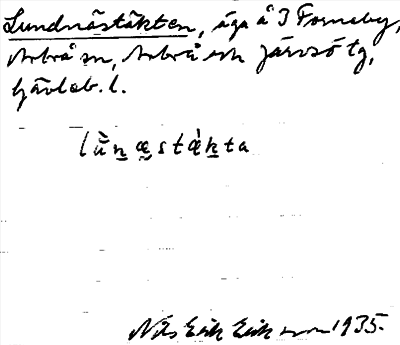 Lundnästäkten, äga å 3 Forneby,
Arbrå sn, Arbrå och Järvsö tg,
Gävleb. l.
lùnæstàkta
Nils Erik Eriksson 1935.